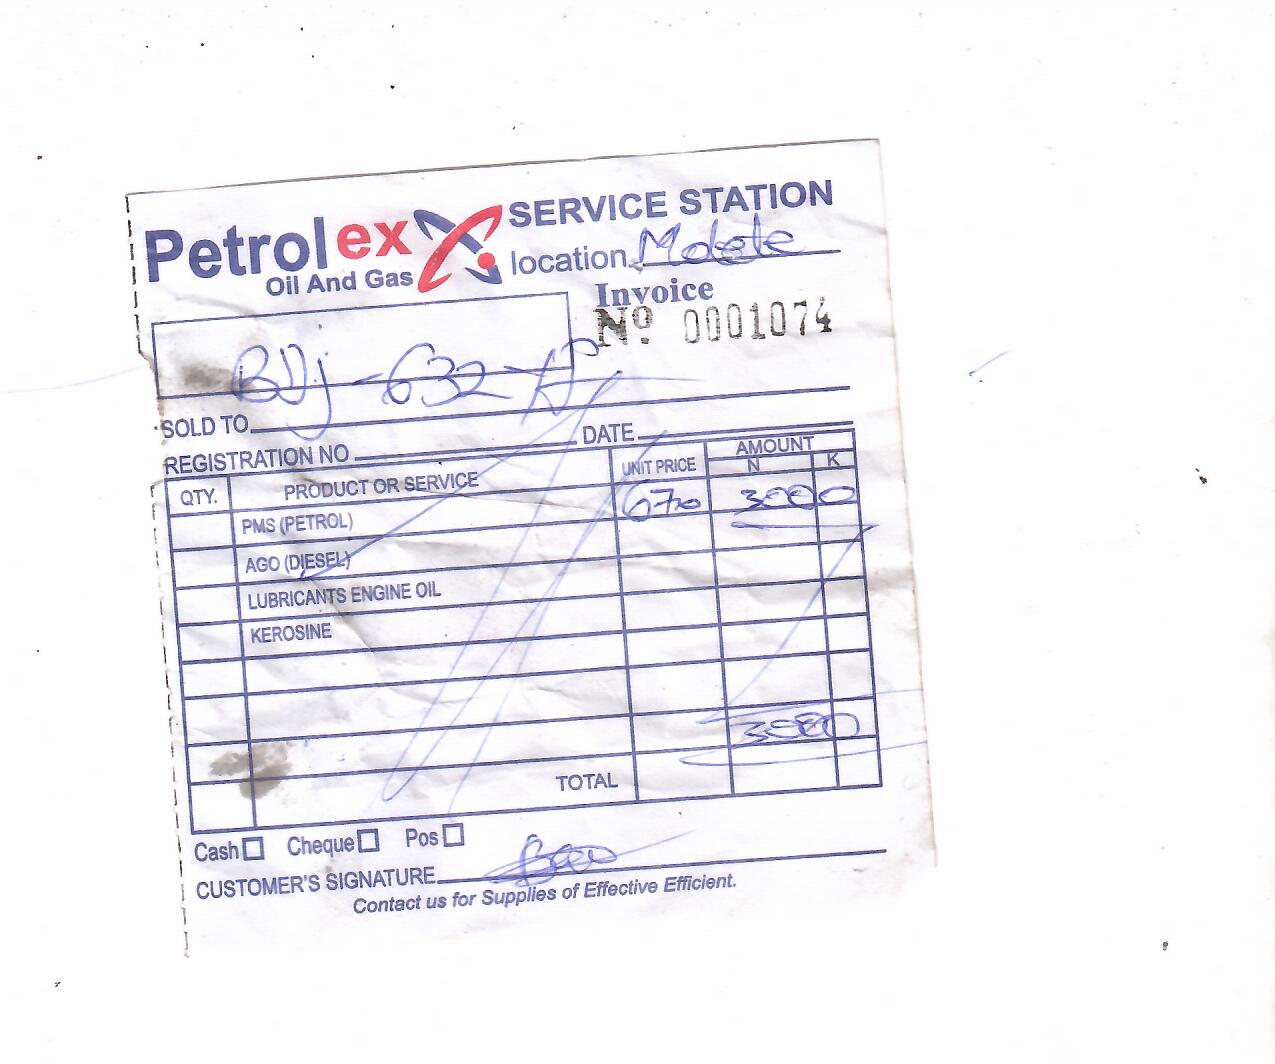 Petrolex SERVICE STATION
Oil And Gas location Molete
Invoice
Nº. 0001074
BDJ-632-
SOLD TO
REGISTRATION NO DATE
QTY. PRODUCT OR SERVICE UNIT PRICE AMOUNT
N K
PMS (PETROL) 670 3000
AGO (DIESEL)
LUBRICANTS ENGINE OIL
KEROSINE
3000
TOTAL
Cash Cheque Pos
CUSTOMER'S SIGNATURE
Contact us for Supplies of Effective Efficient.